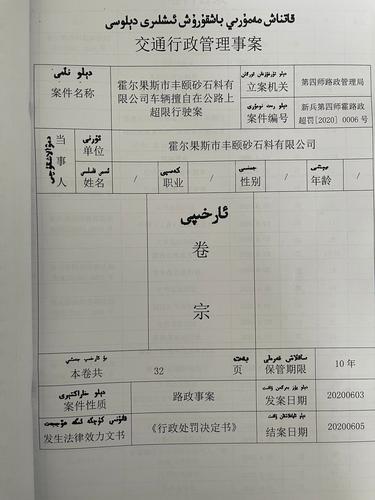 قاتناش مەمۇرىي باشقۇرۇش ئىشلىرى دېلوسى
交通行政管理事案
دېلو نامى
案件名称
霍尔果斯市丰颐砂石料有
限公司车辆擅自在公路上
超限行驶案
立案机关
第四师路政管理局
案件编号
新兵第四师霍路政
超罚[2020] 0006 号
当事人
ئورنى
单位
霍尔果斯市丰颐砂石料有限公司
姓名
/
كەسپى
职业
/
جىنسى
性别
/
يېشى
年龄
/
ئارخىپى
卷
宗
本卷共
32
بەت
页
ساقلاش مۇددىتى
保管期限
10 年
案件性质
路政事案
发案日期
20200603
发生法律效力文书
《行政处罚决定书》
结案日期
20200605